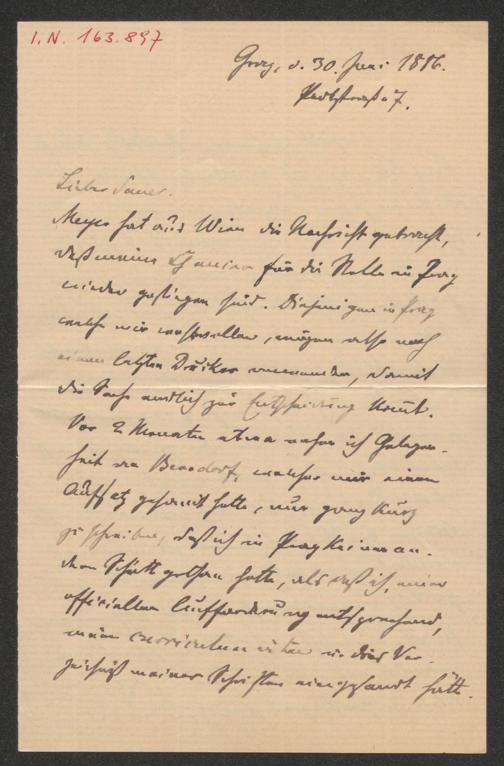 I.N. 163.897
Graz, d. 30. Juni 1886.
7.
Lieber Sauer.
Meyer hat aus Wien die Nachricht gebracht,
daß meine Chancen für die Stelle in Prag
wieder gestiegen sind. Diejenigen in Prag
welche mir wohlwollen, mögen also noch
einen letzten Drücker anwenden, damit
die Sache endlich zur Entscheidung kommt.
Vor 2 Monaten etwa nahm ich Gelegen-
heit an Benndorf, welcher mir einen
Aufsatz gesandt hatte, nur ganz kurz
zu schreiben, daß ich in Prag keinen an-
dern Schritt gethan hätte, als daß ich, einer
officiellen Aufforderung entsprechend,
mein curriculum vitae u. das Ver-
zeichniß meiner Schriften eingesandt hätte.